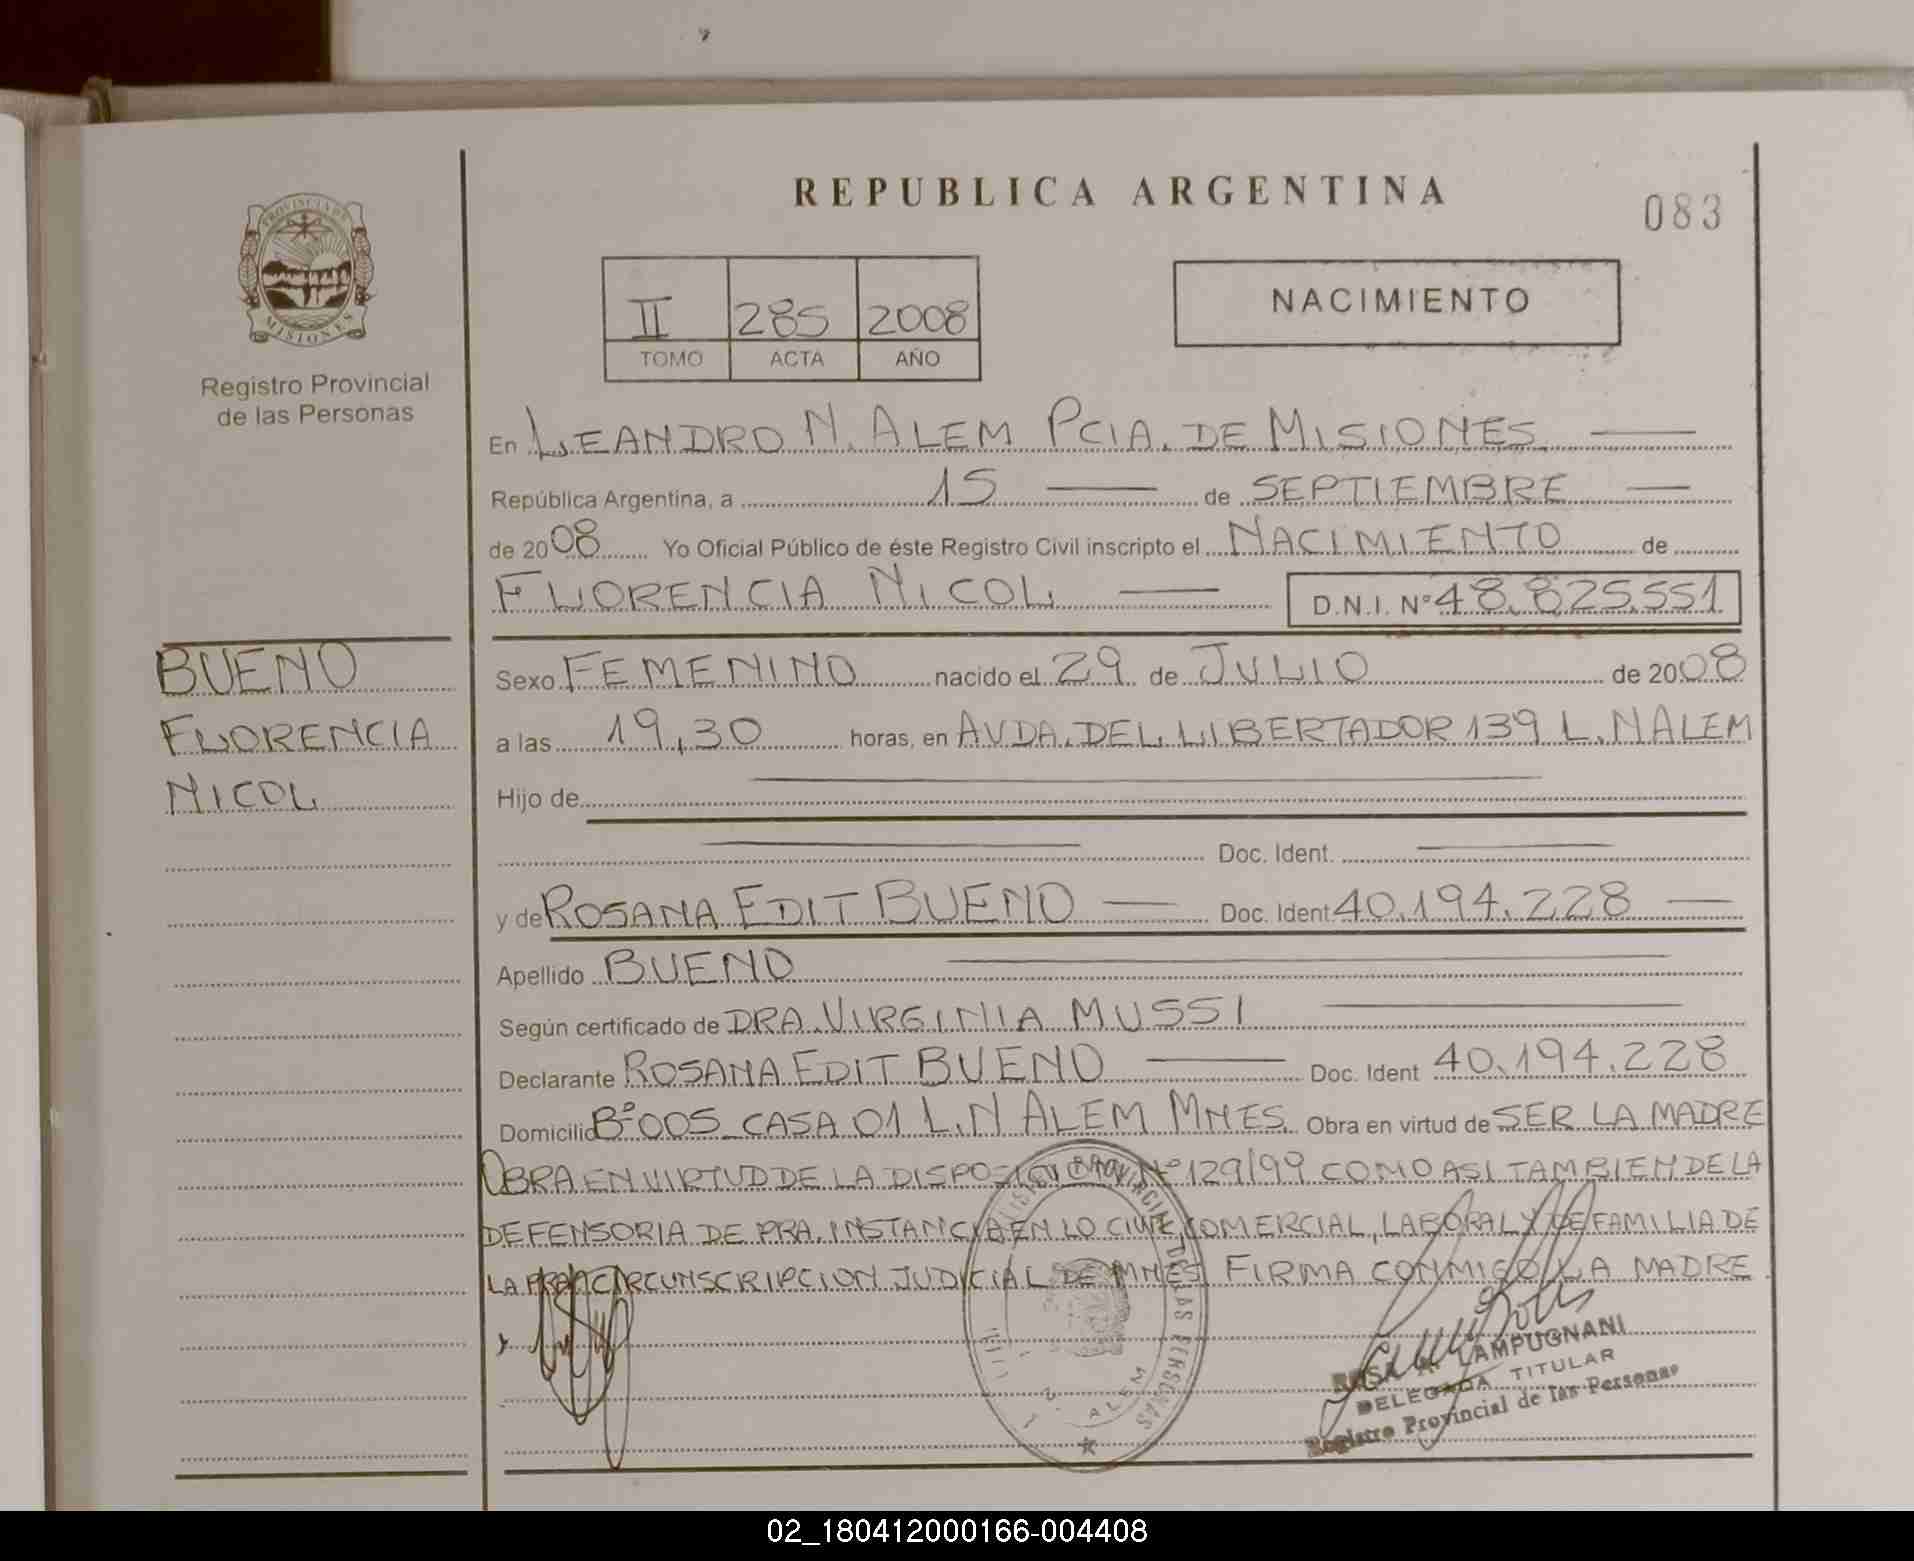 REPUBLICA ARGENTINA
083
PROVINCIA DE
MISIONES
Registro Provincial
de las Personas
II 285 2008
TOMO ACTA AÑO
NACIMIENTO
En LEANDRO N. ALEM PCIA. DE MISIONES
República Argentina, a 15 de SEPTIEMBRE
de 2008 Yo Oficial Público de éste Registro Civil inscripto el NACIMIENTO de
FLORENCIA NICOL D.N.I. Nº 48.825.551
BUENO
FLORENCIA
NICOL
Sexo FEMENINO nacido el 29 de JULIO de 2008
a las 19,30 horas, en AVDA. DEL LIBERTADOR 139 L. N ALEM
Hijo de
Doc. Ident.
y de ROSANA EDIT BUENO Doc. Ident 40.194.228
Apellido BUENO
Según certificado de DRA. VIRGINIA MUSSI
Declarante ROSANA EDIT BUENO Doc. Ident 40.194.228
Domicilio Bº 005 CASA 01 L. N ALEM MNES. Obra en virtud de SER LA MADRE
OBRA EN VIRTUD DE LA DISPOSICION Nº 129/99 COMO ASI TAMBIEN DE LA
DEFENSORIA DE PRA. INSTANCIA EN LO CIVIL, COMERCIAL, LABORAL Y DE FAMILIA DE
LA PRA CIRCUNSCRIPCION JUDICIAL DE MNES. FIRMA CONMIGO LA MADRE
PROVINCIAL DE LAS PERSONAS
N. ALEM
ROSA LAMPUGNANI
DELEGADA TITULAR
Registro Provincial de las Personas
02_180412000166-004408